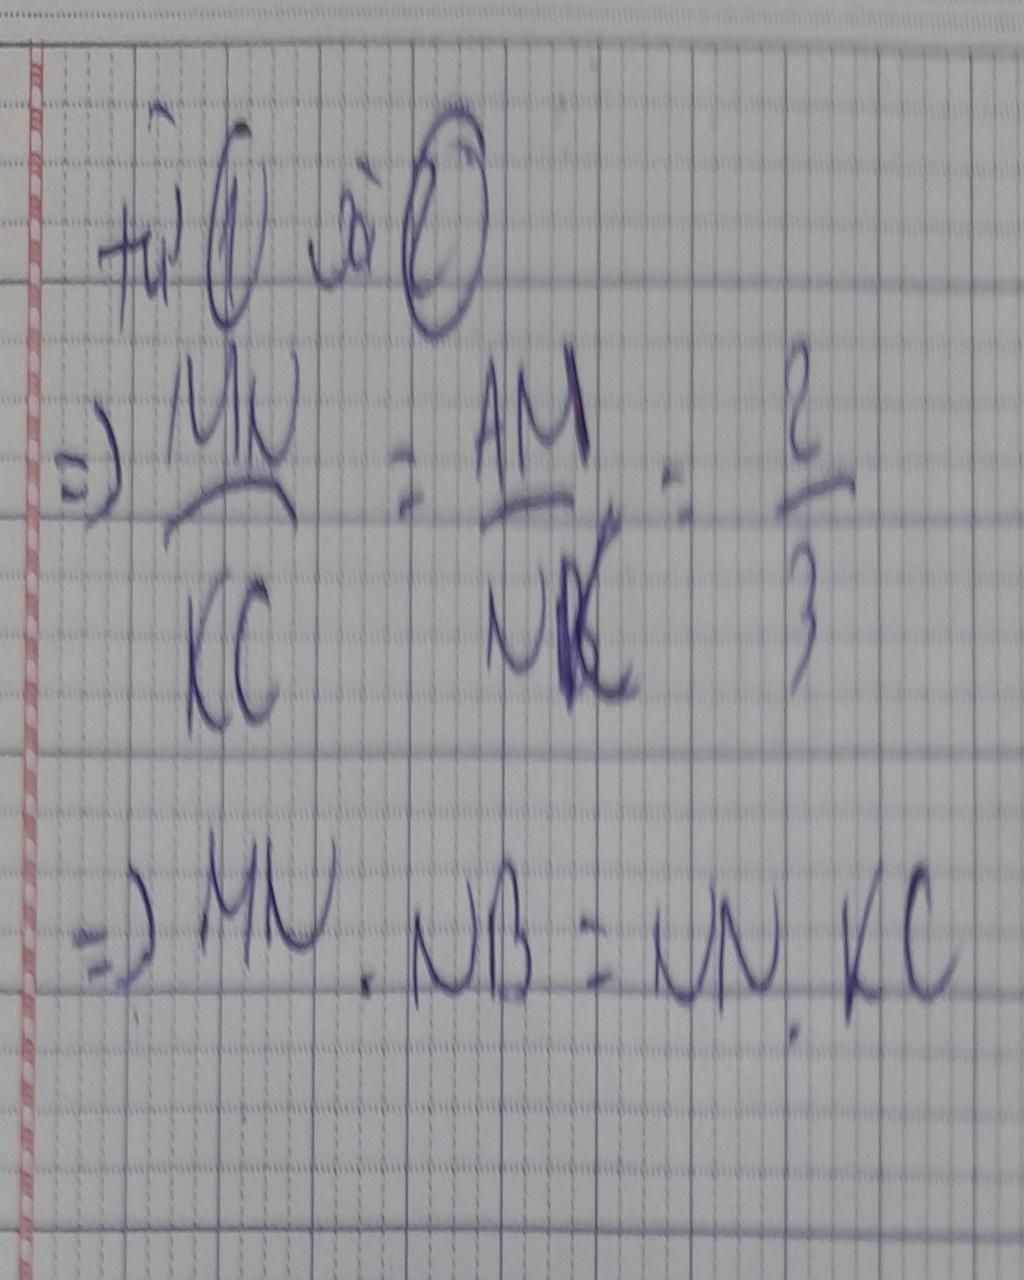 từ ① và ②
=> MN/KC = AM/NK = 2/3
=> MN . NB = NN . KC